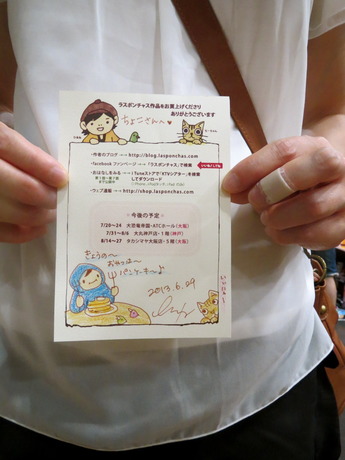 ラスポンチャス作品をお買上げくださり
ありがとうございます
ちょこさんへ♥
・作者のブログ →→ http://blog.lasponchas.com
・facebook ファンページ →→「ラスポンチャス」で検索
いいね!してね
・おはなしをみる →→ iTuneストアで「KTVシアター」を検索
してダウンロード
・ウェブ通販 →→ http://shop.lasponchas.com
<今後の予定>
7/20〜24 大恐竜帝国・ATCホール(大阪)
7/31〜8/6 大丸神戸店・1階(神戸)
8/14〜27 タカシマヤ大阪店・5階(大阪)
きょうの〜
おやつは〜
パンケーキ〜♪
2013.6.29